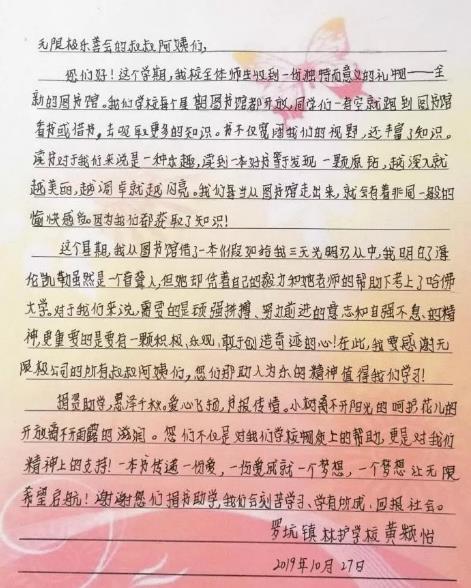 无限极乐善会的叔叔阿姨们,
您们好!这个学期,我校全体师生收到一份独特而意义的礼物——全
新的图书馆。我们学校每个星期图书馆都开放,同学们一有空就跑到图书馆
看书或借书,去吸取更多的知识。书不仅宽阔我们的视野,还丰富了知识。
读书对于我们来说是一种乐趣,读到一本好书等于发现一颗原钻,越深入就
越美丽,越调卓就越闪亮。我们每当从图书馆走出来,就会有着非同一般的
愉快感觉。因为我们都获取了知识!
这个星期,我从图书馆借了一本《假如给我三天光明》从中,我明白了海
伦凯勒虽然是一个盲聋人,但她却信着自己的毅力和她老师的帮助下考上了哈佛
大学。对于我们来说,需要的是顽强拼搏、努力前进的意志和自强不息的精
神,更重要的是要有一颗积极、乐观、敢于创造奇迹的心!在此,我要感谢无
限极公司的所有叔叔阿姨们,您们那助人为乐的精神值得我们学习!
捐资助学,恩泽千秋。爱心飞扬,书报传情。小树离不开阳光的呵护花儿的
开放离不开雨露的滋润。您们不仅是对我们学校物质上的帮助,更是对我们
精神上的支持!一本书传递一份爱,一份爱成就一个梦想,一个梦想让无限
希望启航!谢谢您们捐书助学,我们会刻苦学习、学有所成、回报社会。
罗坑镇林护学校黄颖怡
2019年10月27日